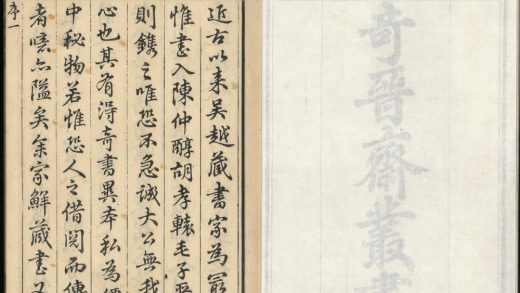 奇晉齋叢書
近古以来吴越藏書家為最
惟書入陳仲醇胡孝轅毛子
則鐫之唯恐不急誠大公無我
心也其有得奇書異本私為
中秘物若惟恐人之借閱而傳
者噫亦隘矣余家鮮藏書又
序一